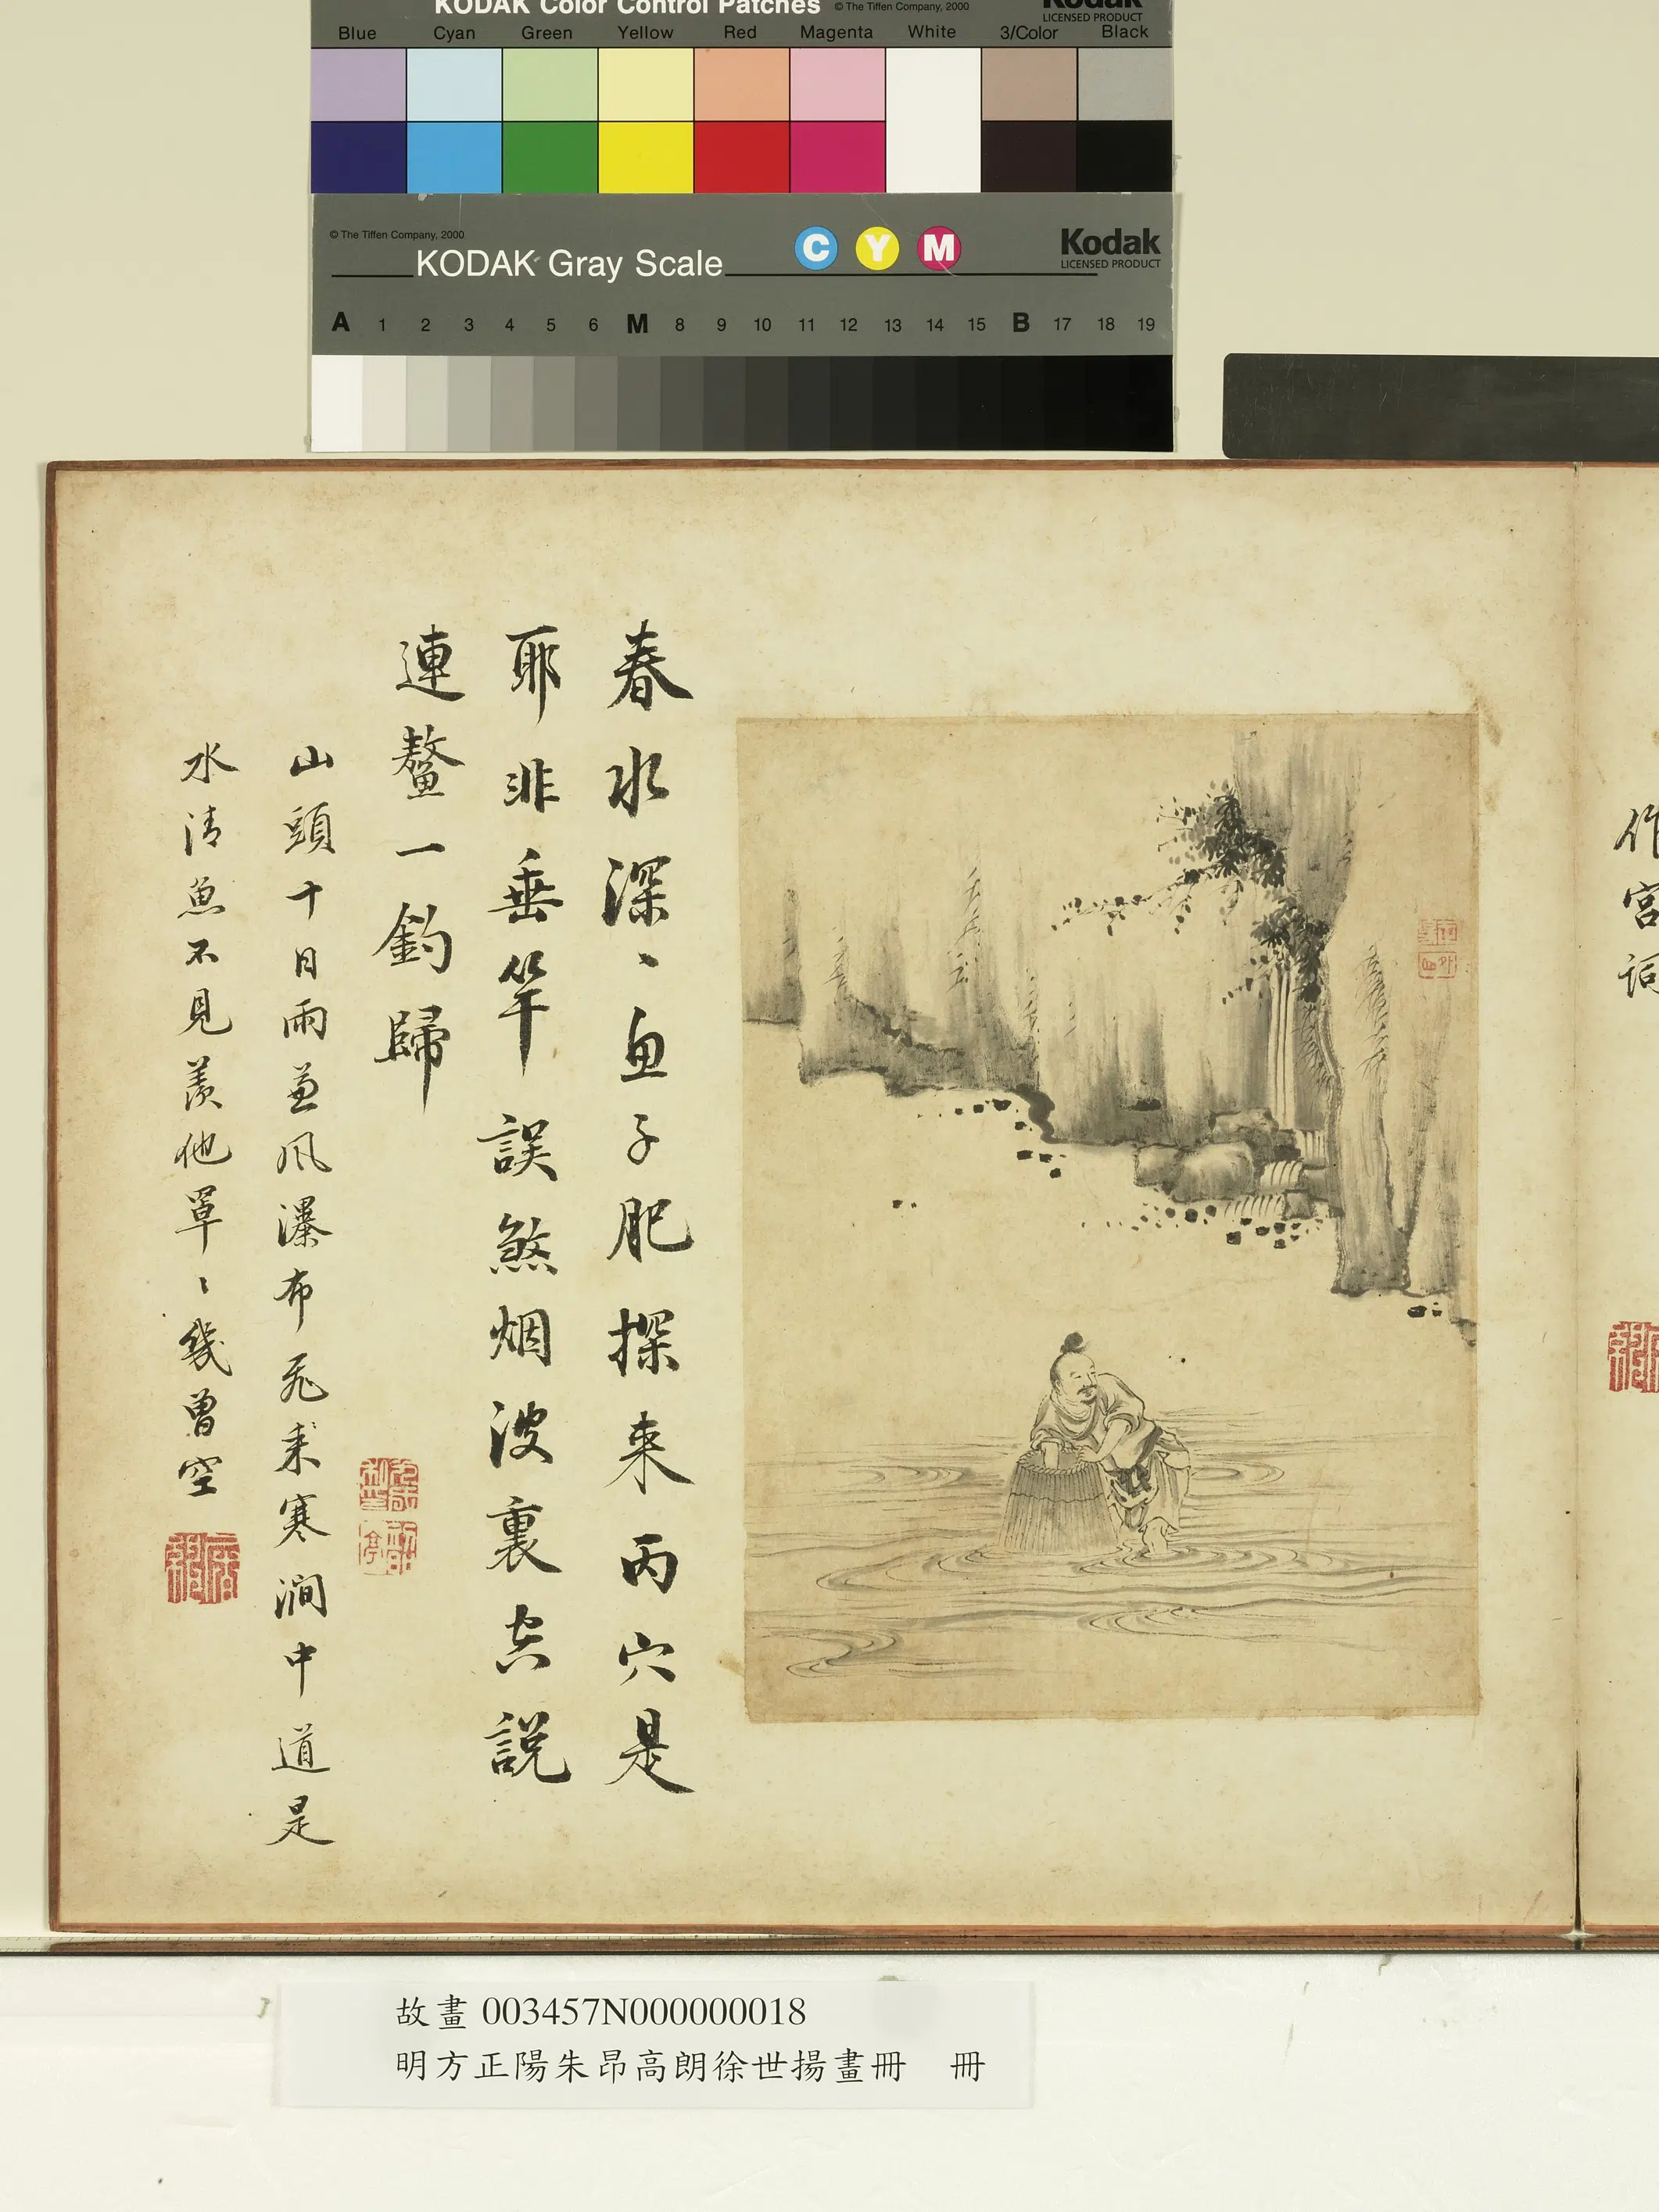 KODAK Color Control Patches © The Tiffen Company, 2000 Kodak
LICENSED PRODUCT
Blue Cyan Green Yellow Red Magenta White 3/Color Black
© The Tiffen Company, 2000
KODAK Gray Scale C Y M Kodak
LICENSED PRODUCT
A 1 2 3 4 5 6 M 8 9 10 11 12 13 14 15 B 17 18 19
作宮詞
春水深、魚子肥探来丙穴是
耶非垂竿誤煞烟波裏忘説
連鼇一釣歸
山頭十日雨兼风瀑布飛来寒澗中道是
水清魚不見羨他罩〻幾曾空
故畫 003457N000000018
明方正陽朱昂高朗徐世揚畫冊 冊